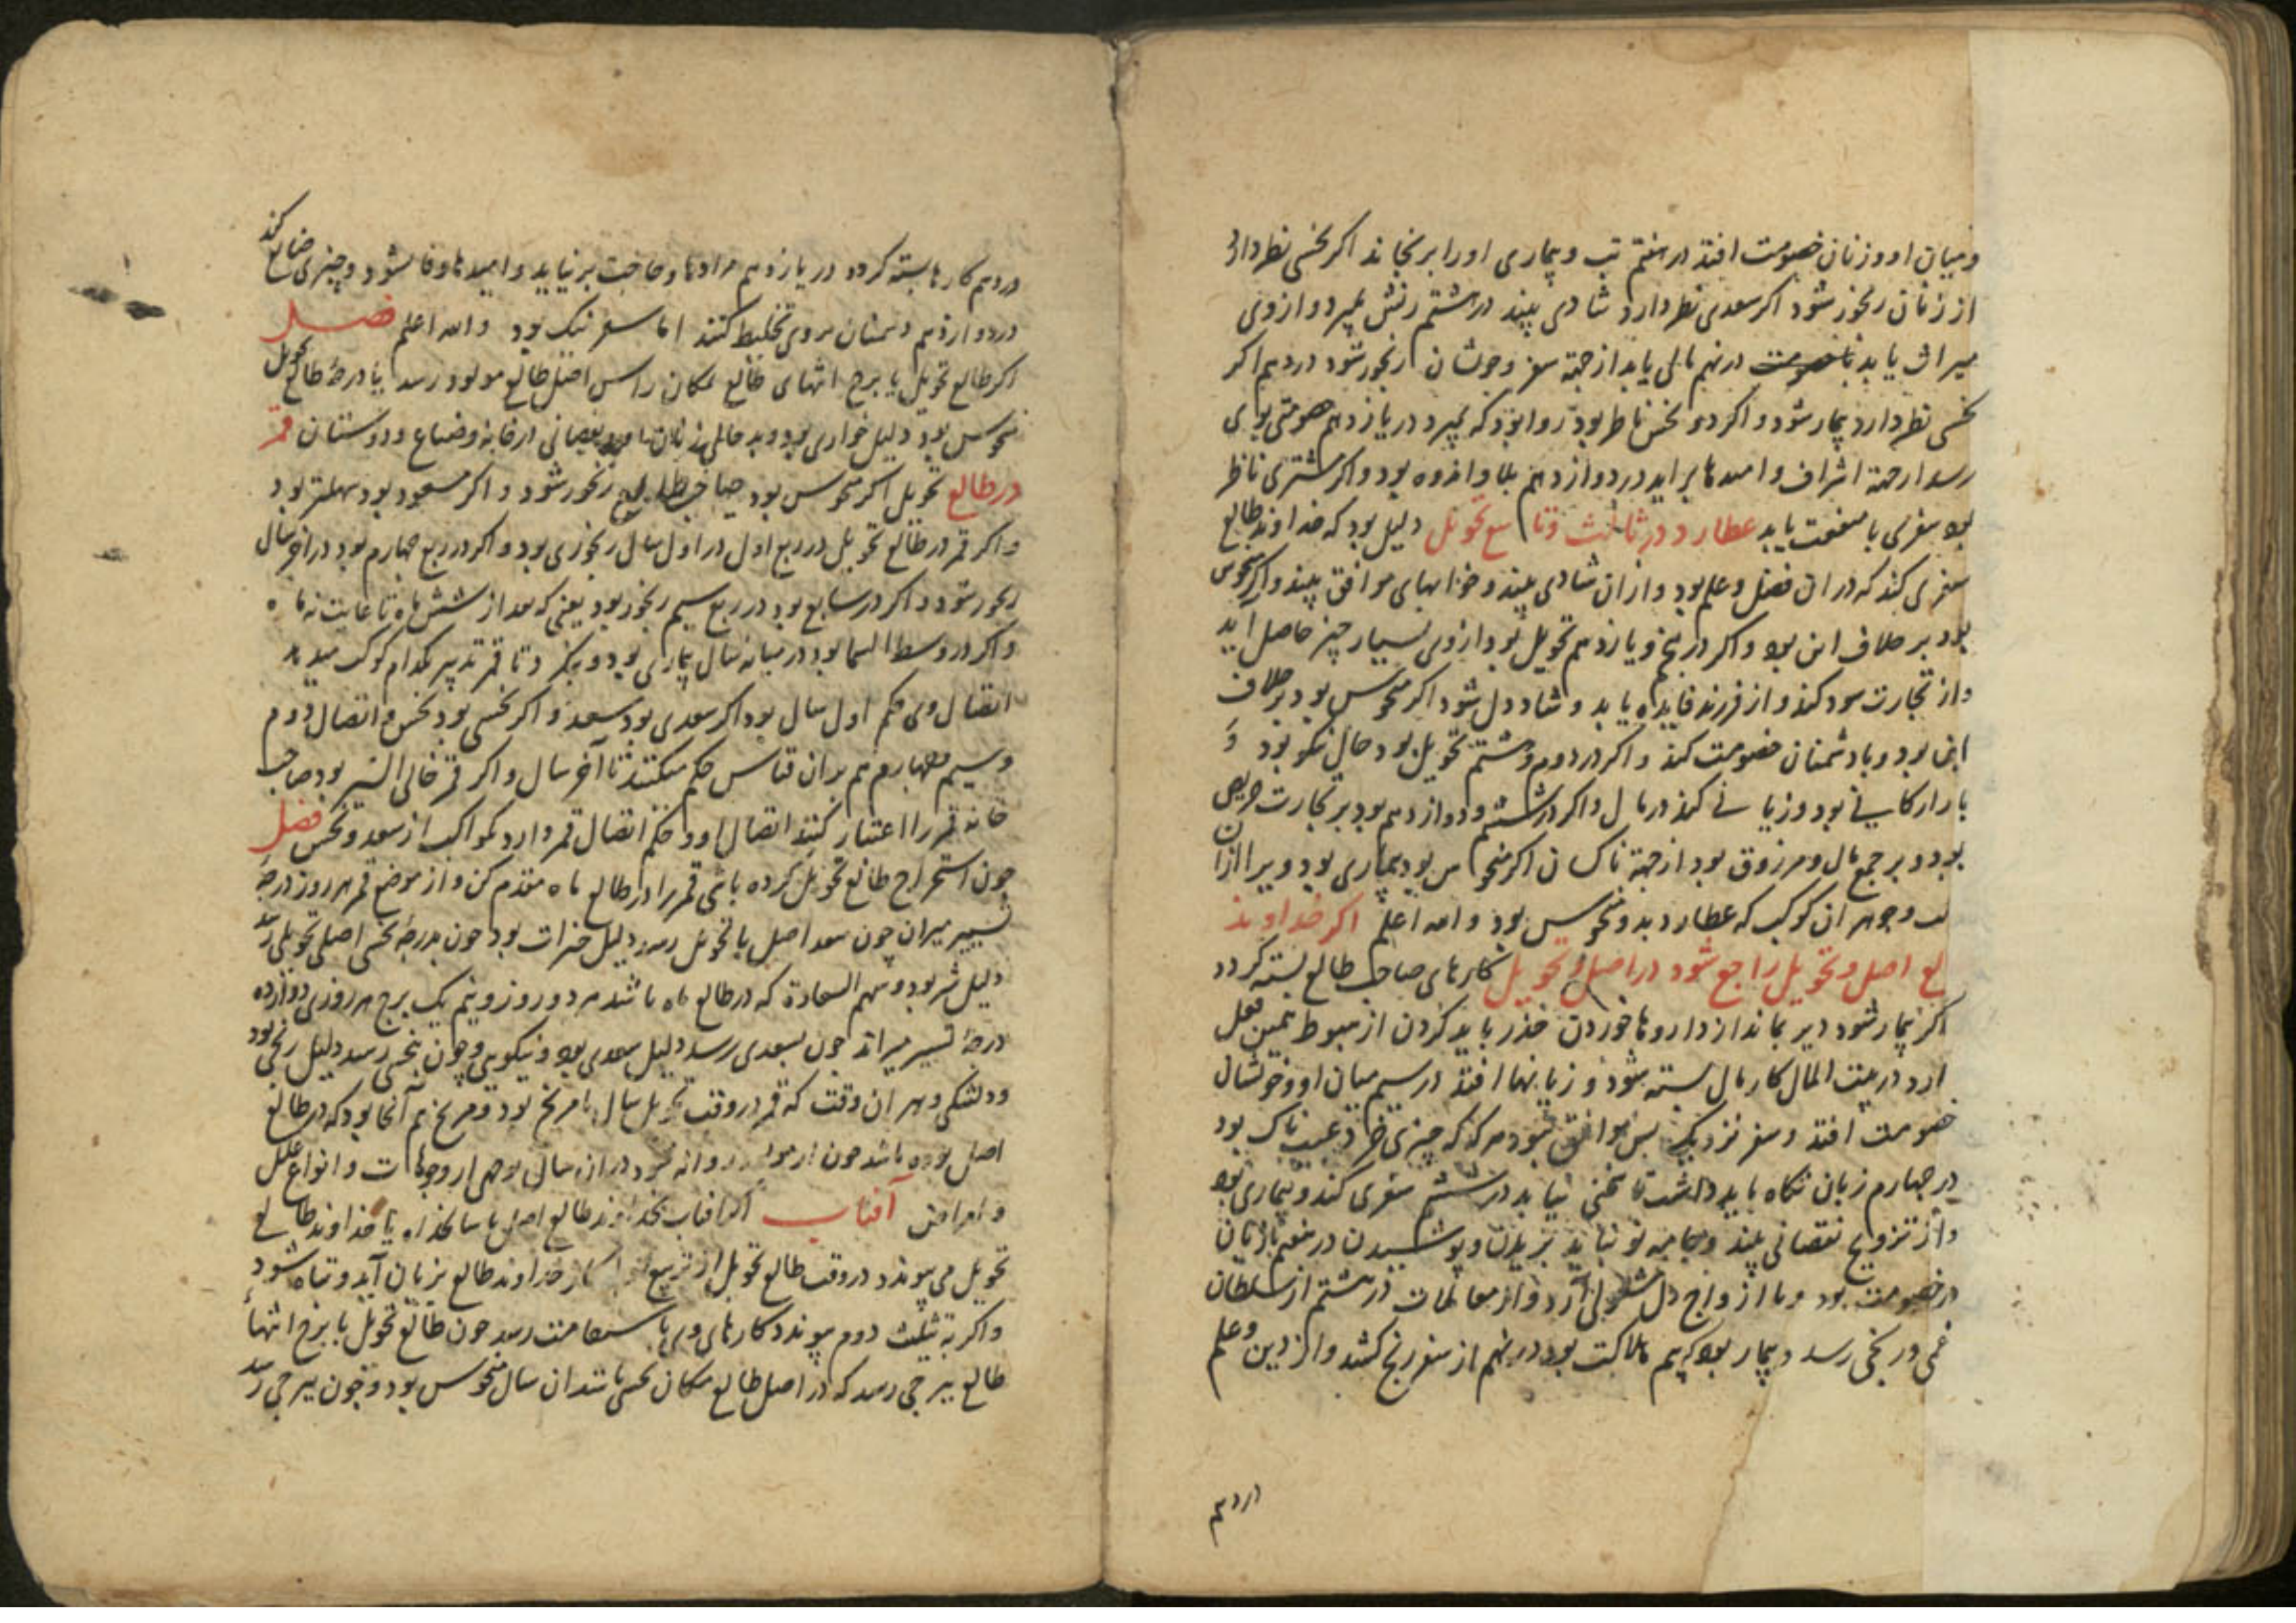 و میان او و زنان خصومت افتد در هفتم تب و بیماری او را برنجاند اکر نحسی نظر دارد
از زنان رنجور شود اکر سعدی نظر دارد شادی بیند در هشتم زنش بمیرد و از وی
میراث یابد با خصومت در نهم مالی یابد از جهة سفر و خویشان رنجور شود در دهم اکر
نحسی نظر دارد بیمار شود و اکر دو نحس ناظر بود روا بود که بمیرد در یازدهم خصومتی بوی
رسد از جهة اشراف و امیدها براید در دوازدهم بلا و اندوه بود و اکر مشتری ناظر
بود سفری با منفعت یابد عطارد در ثالث و تاسع تحویل دلیل بود که خداوند طالع
سفری کند که در ان فضل و علم بود و از ان شادی بیند و خوابهای موافق بیند و اکر منحوس
بود بر خلاف این بود و اکر در پنجم و یازدهم تحویل بود از وی بسیار چیز حاصل آید
و از تجارت سود کند و از فرزند فایده یابد و شاددل شود اکر منحوس بود بر خلاف
این بود و با دشمنان خصومت کند و اکر در دوم و هشتم تحویل بود حال نیکو بود و
بازارکانی بود و زیانی کند در مال و اکر در ششم و دوازدهم بود بر تجارت حریص
بود و بر جمع مال و مرزوق بود از جهة ناکسان اکر منحوس بود بیماری بود ویرا از ان
و جوهر ان کوکب که عطارد بدو منحوس بود و الله اعلم اکر خداوند
لع اصل و تحویل راجع شود در اصل و تحویل کارهای صاحب طالع بسته کردد
اکر بیمار شود دیر بماند از داروها خوردن حذر باید کردن از هبوط همین فعل
ارد در بیت المال کار مال بسته شود و زیانها افتد در سیم میان او و خویشان
خصومت افتد و سفر نزدیک بس موافق نبود هرکه که چیزی خرد عیب ناک بود
در چهارم زبان نکاه باید داشت تا سختی نیابد در ششم سفری کند و بیماری بود
و از تزویج نقصانی بیند و جامه نو نباید بریدن و پوشیدن در هفتم با زنان
در خصومت بود و با ازواج دل مشغولی آرد و از معاملات در هشتم از سلطان
غمی و رنجی رسد و بیمار بود که بیم هلاکت بود در نهم از سفر رنج کشد و از دین و علم
در دهم
در دهم کارها بسته کردد در یازدهم مرادها و حاجت برنیاید و امیدها وفا نشود و چیزی ضایع کند
در دوازدهم دشمنان بروی تخلیط کنند اما سفر نیک بود و الله اعلم فصل
اکر طالع تحویل یا برج انتهای طالع بمکان راس اصل طالع مولود رسد یا درجۀ طالع تحویل
منحوس بود دلیل خواری بود و بدحالی و نقصانی در خانه و ضیاع و دوستان قمر
در طالع تحویل اکر منحوس بود صاحب طالع رنجور شود و اکر مسعود بود سهلتر بود
و اکر قمر در طالع تحویل در ربع اول در اول سال رنجوری بود و اکر در ربع چهارم بود در آخر سال
رنجور شود و اکر در سابع بود در ربع سیم رنجور بود یعنی که بعد از شش ماه تا غایت نه ماه
و اکر در وسط السما بود در میانه سال بیماری بود و بنکرد تا قمر تدبیر بکدام کوکب میدهد
اتصال وی حکم اول سال بود اکر سعدی بود سعد و اکر نحسی بود نحس و اتصال دوم
و سیم و چهارم هم بران قیاس حکم میکنند تا آخر سال و اکر قمر خالی السیر بود صاحب
خانه قمر را اعتبار کنند اتصال او و حکم اتصال قمر دارد بکواکب از سعد و نحس فصل
چون استخراج طالع تحویل کرده باشی قمر را در طالع ماه مقدم کن و از موضع قمر هر روز درجۀ
تسییر میران چون بسعد اصل یا تحویل رسد دلیل خیرات بود چون بدرجۀ نحس اصلی تحویلی رسد
دلیل شر بود و سهم السعادة که در طالع ماه باشد هر دو روز و نیم یک برج هر روزی دوازده
درجۀ تسییر میراند چون بسعدی رسد دلیل سعدی بود و نیکویی و چون بنحسی رسد دلیل رنجی بود
و دلتنکی و هر ان وقت که قمر در وقت تحویل سال با مریخ بود و مریخ هم آنجا بود که در طالع
اصل بوده باشد خون از دروانه شود در ان سال بوجهی از وجوهات و انواع علل
و امراض آفتاب اکر افتاب بخداوند طالع اصل یا سالخداه یا خداوند طالع
تحویل می پیوندد در وقت طالع تحویل از تربیع کار خداوند طالع بزیان آید و تباه شود
و اکر به تثلیث دوم پیوندد کارهای وی با ستقامت رسد چون طالع تحویل یا برج انتهاء
طالع ببرجی رسد که در اصل طالع مکان نحسی باشد ان سال منحوس بود و چون ببرجی رسد